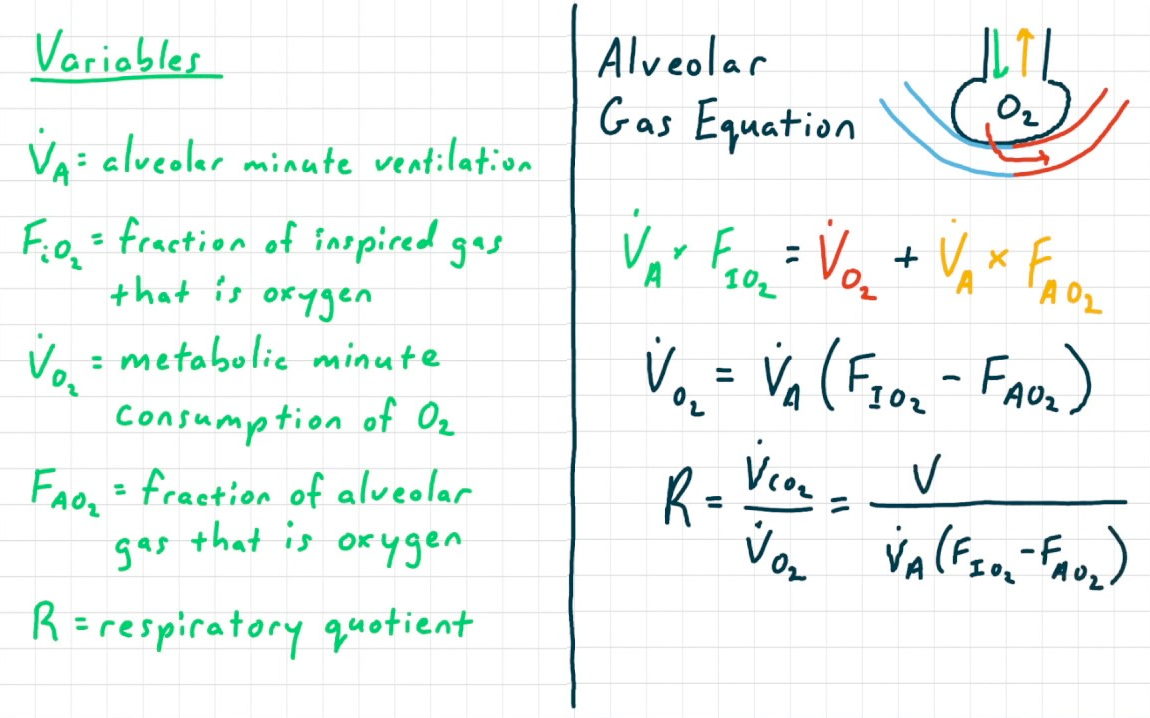 Variables
V̇A = alveolar minute ventilation
FiO₂ = fraction of inspired gas
that is oxygen
V̇O₂ = metabolic minute
consumption of O₂
FAO₂ = fraction of alveolar
gas that is oxygen
R = respiratory quotient
Alveolar
Gas Equation
O₂
V̇A × FIO₂ = V̇O₂ + V̇A × FAO₂
V̇O₂ = V̇A (FIO₂ - FAO₂)
R = V̇CO₂ / V̇O₂ = V / V̇A (FIO₂ - FAO₂)